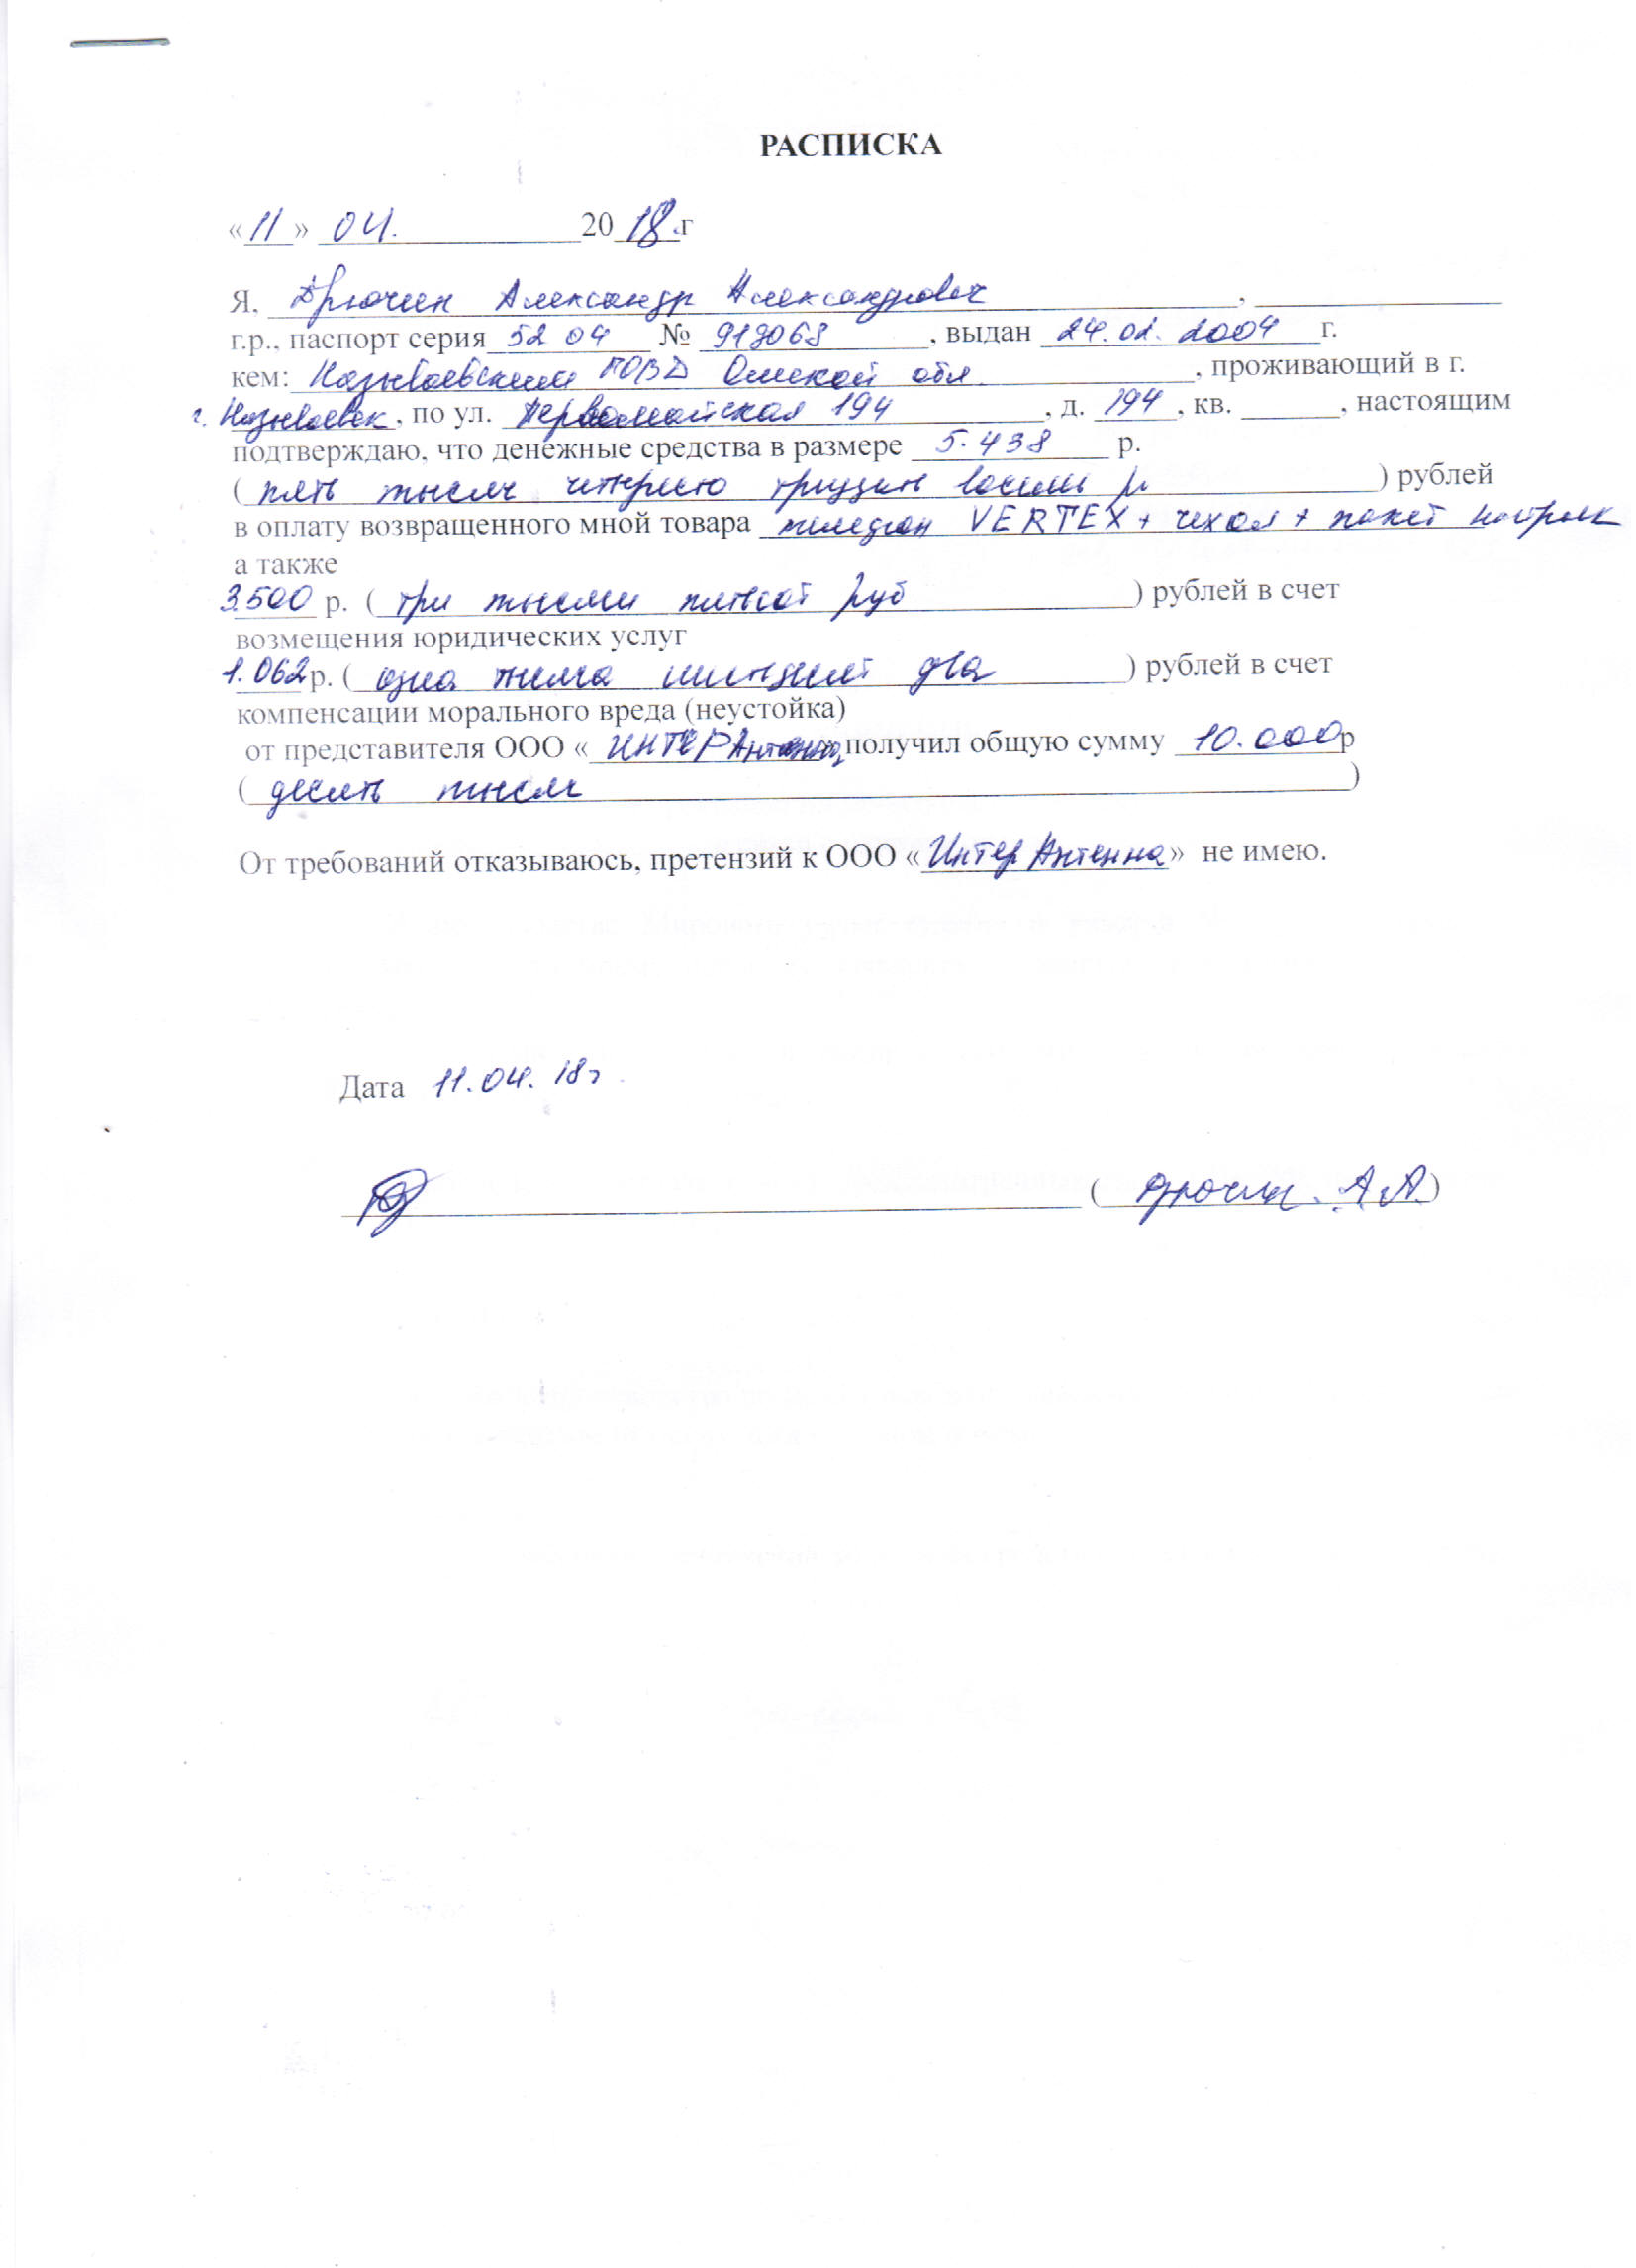 РАСПИСКА
«11» 04. 2018.г
Я, Дрючин Александр Александрович,
г.р., паспорт серия 52 04 № 919068, выдан 24.02.2004 г.
кем: Называевским ГОВД Омской обл, проживающий в г.
г. Называевск, по ул. Первомайская 194, д. 194, кв. , настоящим
подтверждаю, что денежные средства в размере 5.438 р.
(пять тысяч четыресто тридцать восемь р) рублей
в оплату возвращенного мной товара телефон VERTEX + чехол + пакет настроек
а также
3.500 р. (три тысячи пятьсот руб) рублей в счет
возмещения юридических услуг
1.062 р. (одна тысяча шестьдесят два) рублей в счет
компенсации морального вреда (неустойка)
от представителя ООО «ИНТЕР Антенна» получил общую сумму 10.000р
(десять тысяч)
От требований отказываюсь, претензий к ООО «Интер Антенна» не имею.
Дата 11.04.18г
(Дрючин. А.А.)